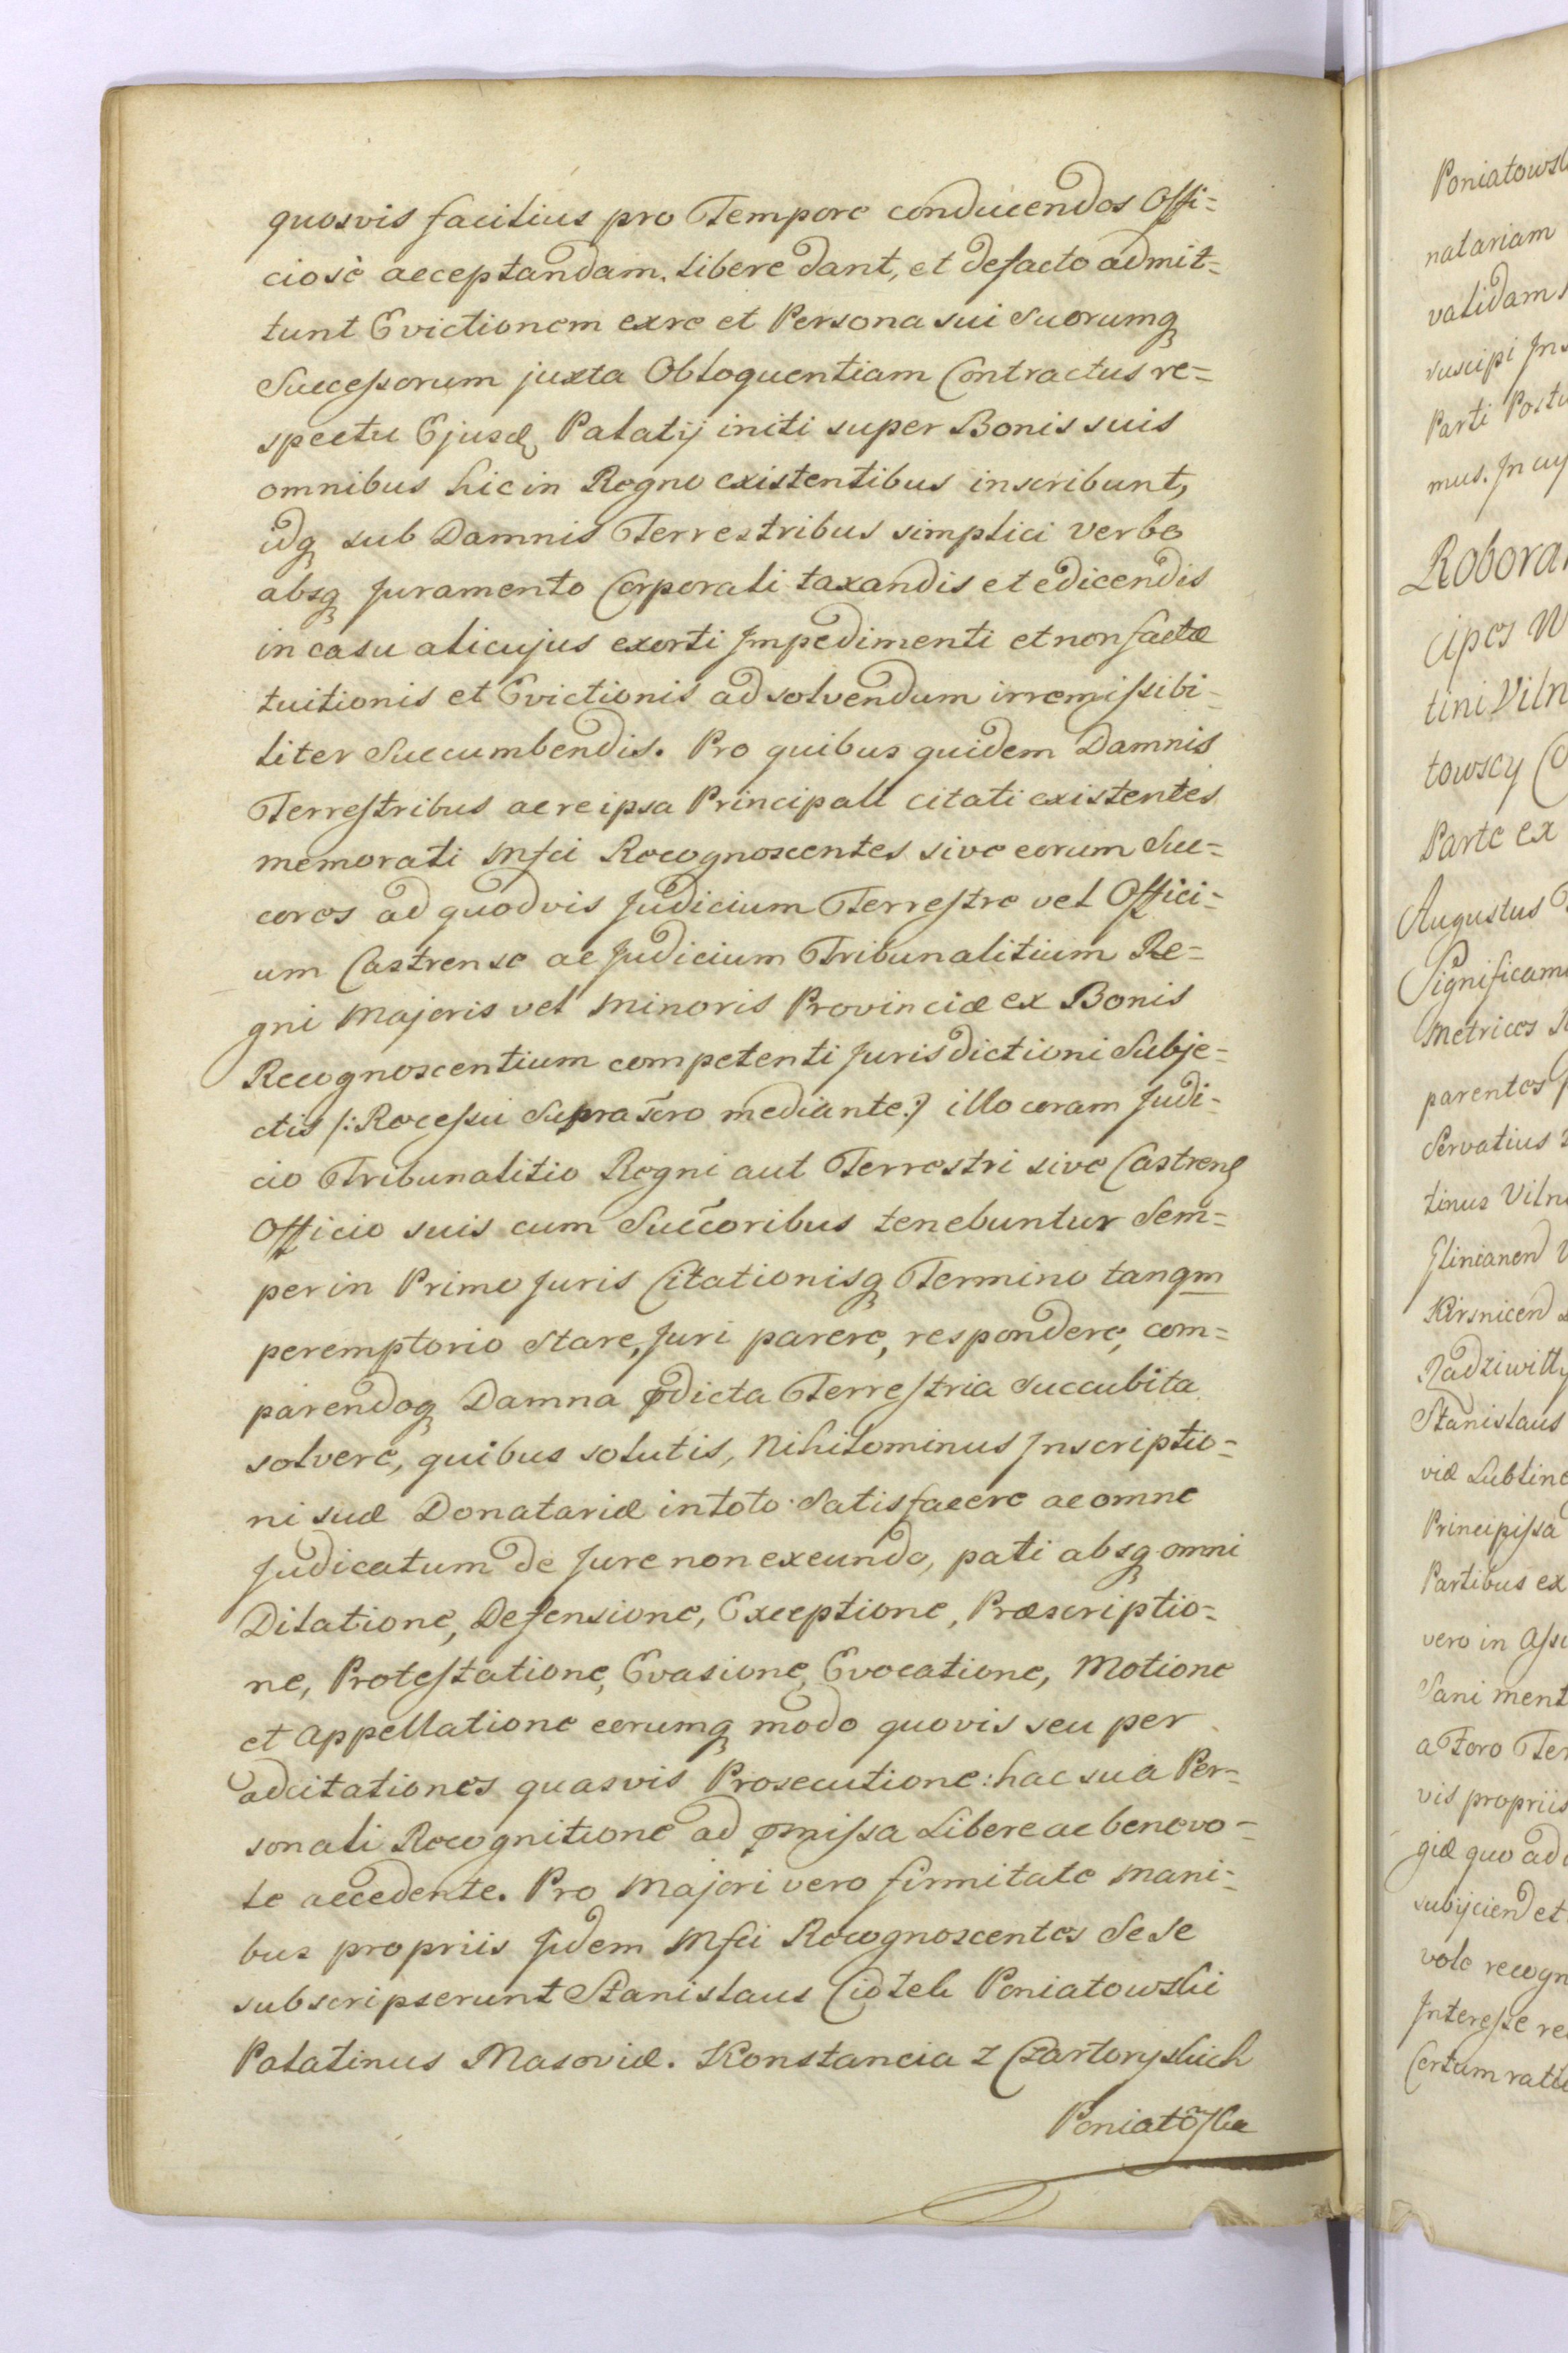 quosvis facilius pro Tempore conducendos Offi=
ciosè acceptandam. Libere dant, et defacto admit=
tunt Evictionem exre et Persona sui Suorumq
Successorum juxta Obloquentiam Contractus re=
spectu Ejusd Palatij initi super Bonis suis
omnibus hic in Regno existentibus inscribunt,
idq sub Damnis Terrestribus simplici verbo
absq Juramento Corporali taxandis et edicendis
in casu alicujus exorti Impedimenti et non factæ
tuitionis et Evictionis ad solvendum irremissibi=
liter Succumbendis. Pro quibus quidem Damnis
Terrestribus ac re ipsa Principali citati existentes
memorati Mfci Recognoscentes sive eorum Suc=
cores ad quodvis Judicium Terrestre vel Offici=
um Castrense ac Judicium Tribunalitium Re=
gni Majoris vel Minoris Provinciæ ex Bonis
Recognoscentium competenti Jurisdictioni Subje=
ctis /: Recessu Suprascro mediante :/ illo coram Judi=
cio Tribunalitio Regni aut Terrestri sive Castren
Officio suis cum Succoribus tenebuntur Sem=
per in Primo Juris Citationisq Termino tanqm
peremptorio Stare, Juri parere, respondere, com=
parendoq Damna pdicta Terrestria Succubita
solvere, quibus solutis, Nihilominus Inscriptio=
ni suæ Donatariæ in toto Satisfacere ac omne
Judicatum de Jure non exeundo, pati absq omni
Dilatione, Defensione, Exceptione, Præscriptio=
ne, Protestatione, Evasione, Evocatione, Motione
et Appellatione eorumq modo quovis seu per
adcitationes quasvis Prosecutione: hac sua Per=
sonali Recognitione ad pmissa Libere ac benevo=
le accedente. Pro Majori vero firmitate Mani=
bus propriis Iidem Mfci Recognoscentes Sese
subscripserunt Stanislaus Ciołek Poniatowski
Palatinus Masoviæ. Konstancia z Czartoryskich
Poniatoska
Poniatows
natariam
validam
suscipi
Parti
mus. In
Robora
cipes
tini Viln
towscy
Parte ex
Augustus
Significam
Metrices
parentes
Servatius
tinus Viln
Kirsnicen
Radziwiłł
Stanislaus
viæ Lubline
Principissa
Partibus ex
vero in
Sani ment
a Foro Ter
vis propriis
giæ quo ad
subijciend et
vole recogn
Interesse re
Certum rat